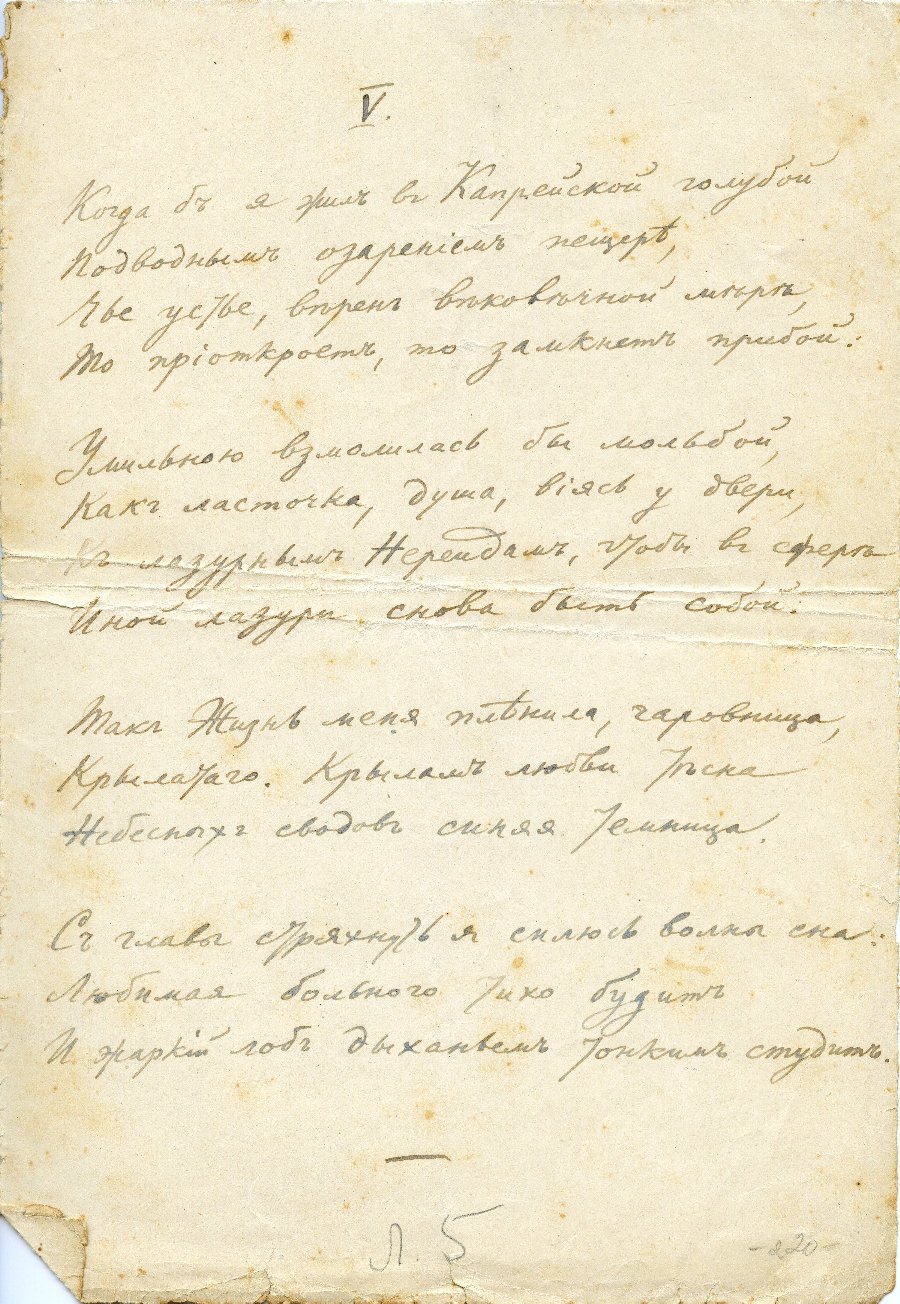 V.
Когда бъ я жилъ въ Капрейской голубой
Подводнымъ озареніемъ пещерѣ,
Чье устье, вѣренъ вѣковѣчной мѣрѣ,
То пріоткроетъ, то замкнетъ прибой:
Умильною взмолилась бы мольбой,
Какъ ласточка, душа, віясь у двери,
Къ лазурнымъ Нереидамъ, чтобы въ сферѣ
Иной лазури снова быть собой.
Такъ Жизнь меня плѣнила, чаровница,
Крылатаго. Крыламъ любви тѣсна
Небесныхъ сводовъ синяя темница.
Съ главы стряхнуть я силюсь волны сна:
Любимая больного тихо будитъ
И жаркій лобъ дыханьемъ тонкимъ студитъ.
Л. 5
-220-